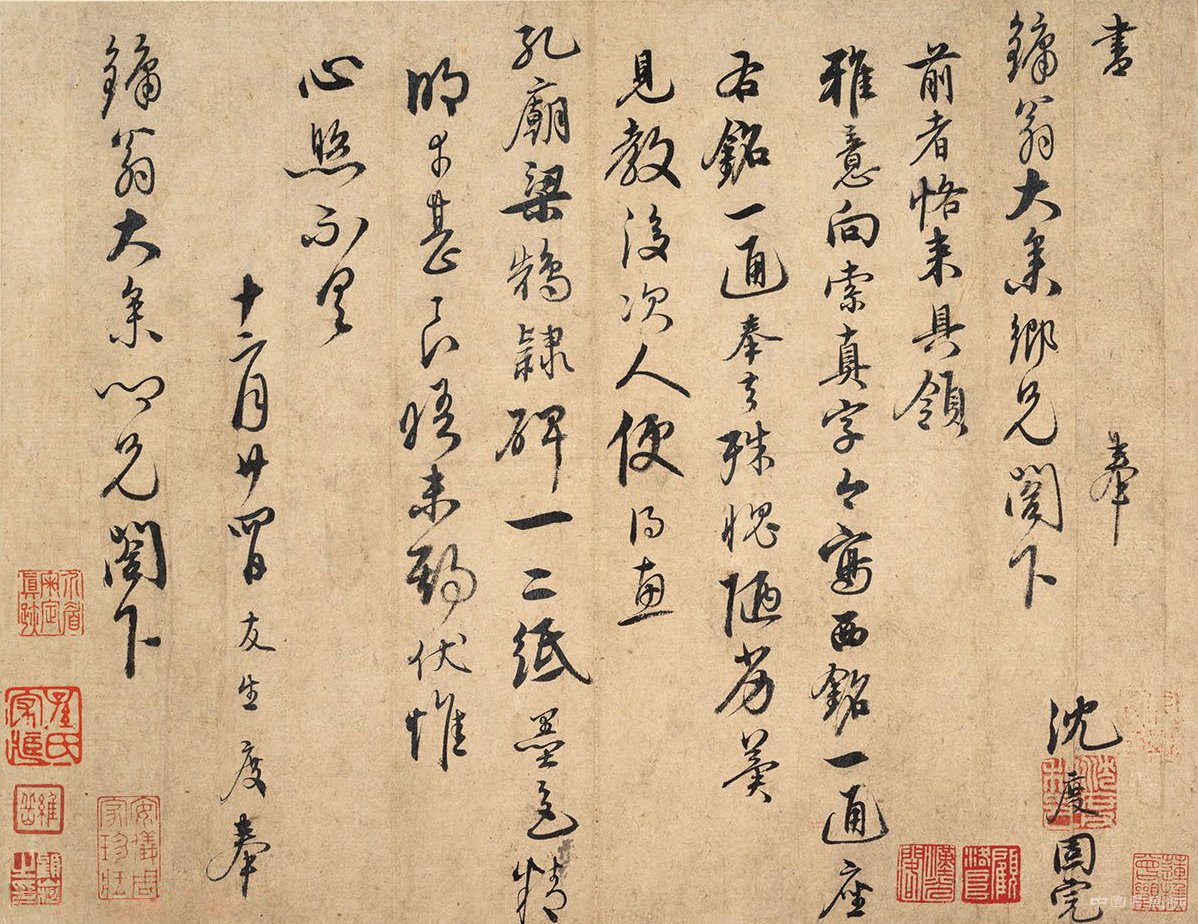 書 奉
鏞翁大參鄉兄閣下
沈度固完
前者恪來具領
雅意向索真字今寫西銘一通座
右銘一通奉去殊愧陋劣冀
見教後次人便得惠
孔廟梁鵠隸碑一二紙墨色精
明幸甚良晤未期伏惟
心照不具
十二月廿四日友生度奉
鏞翁大參鄉兄閣下
安儀周家珍藏